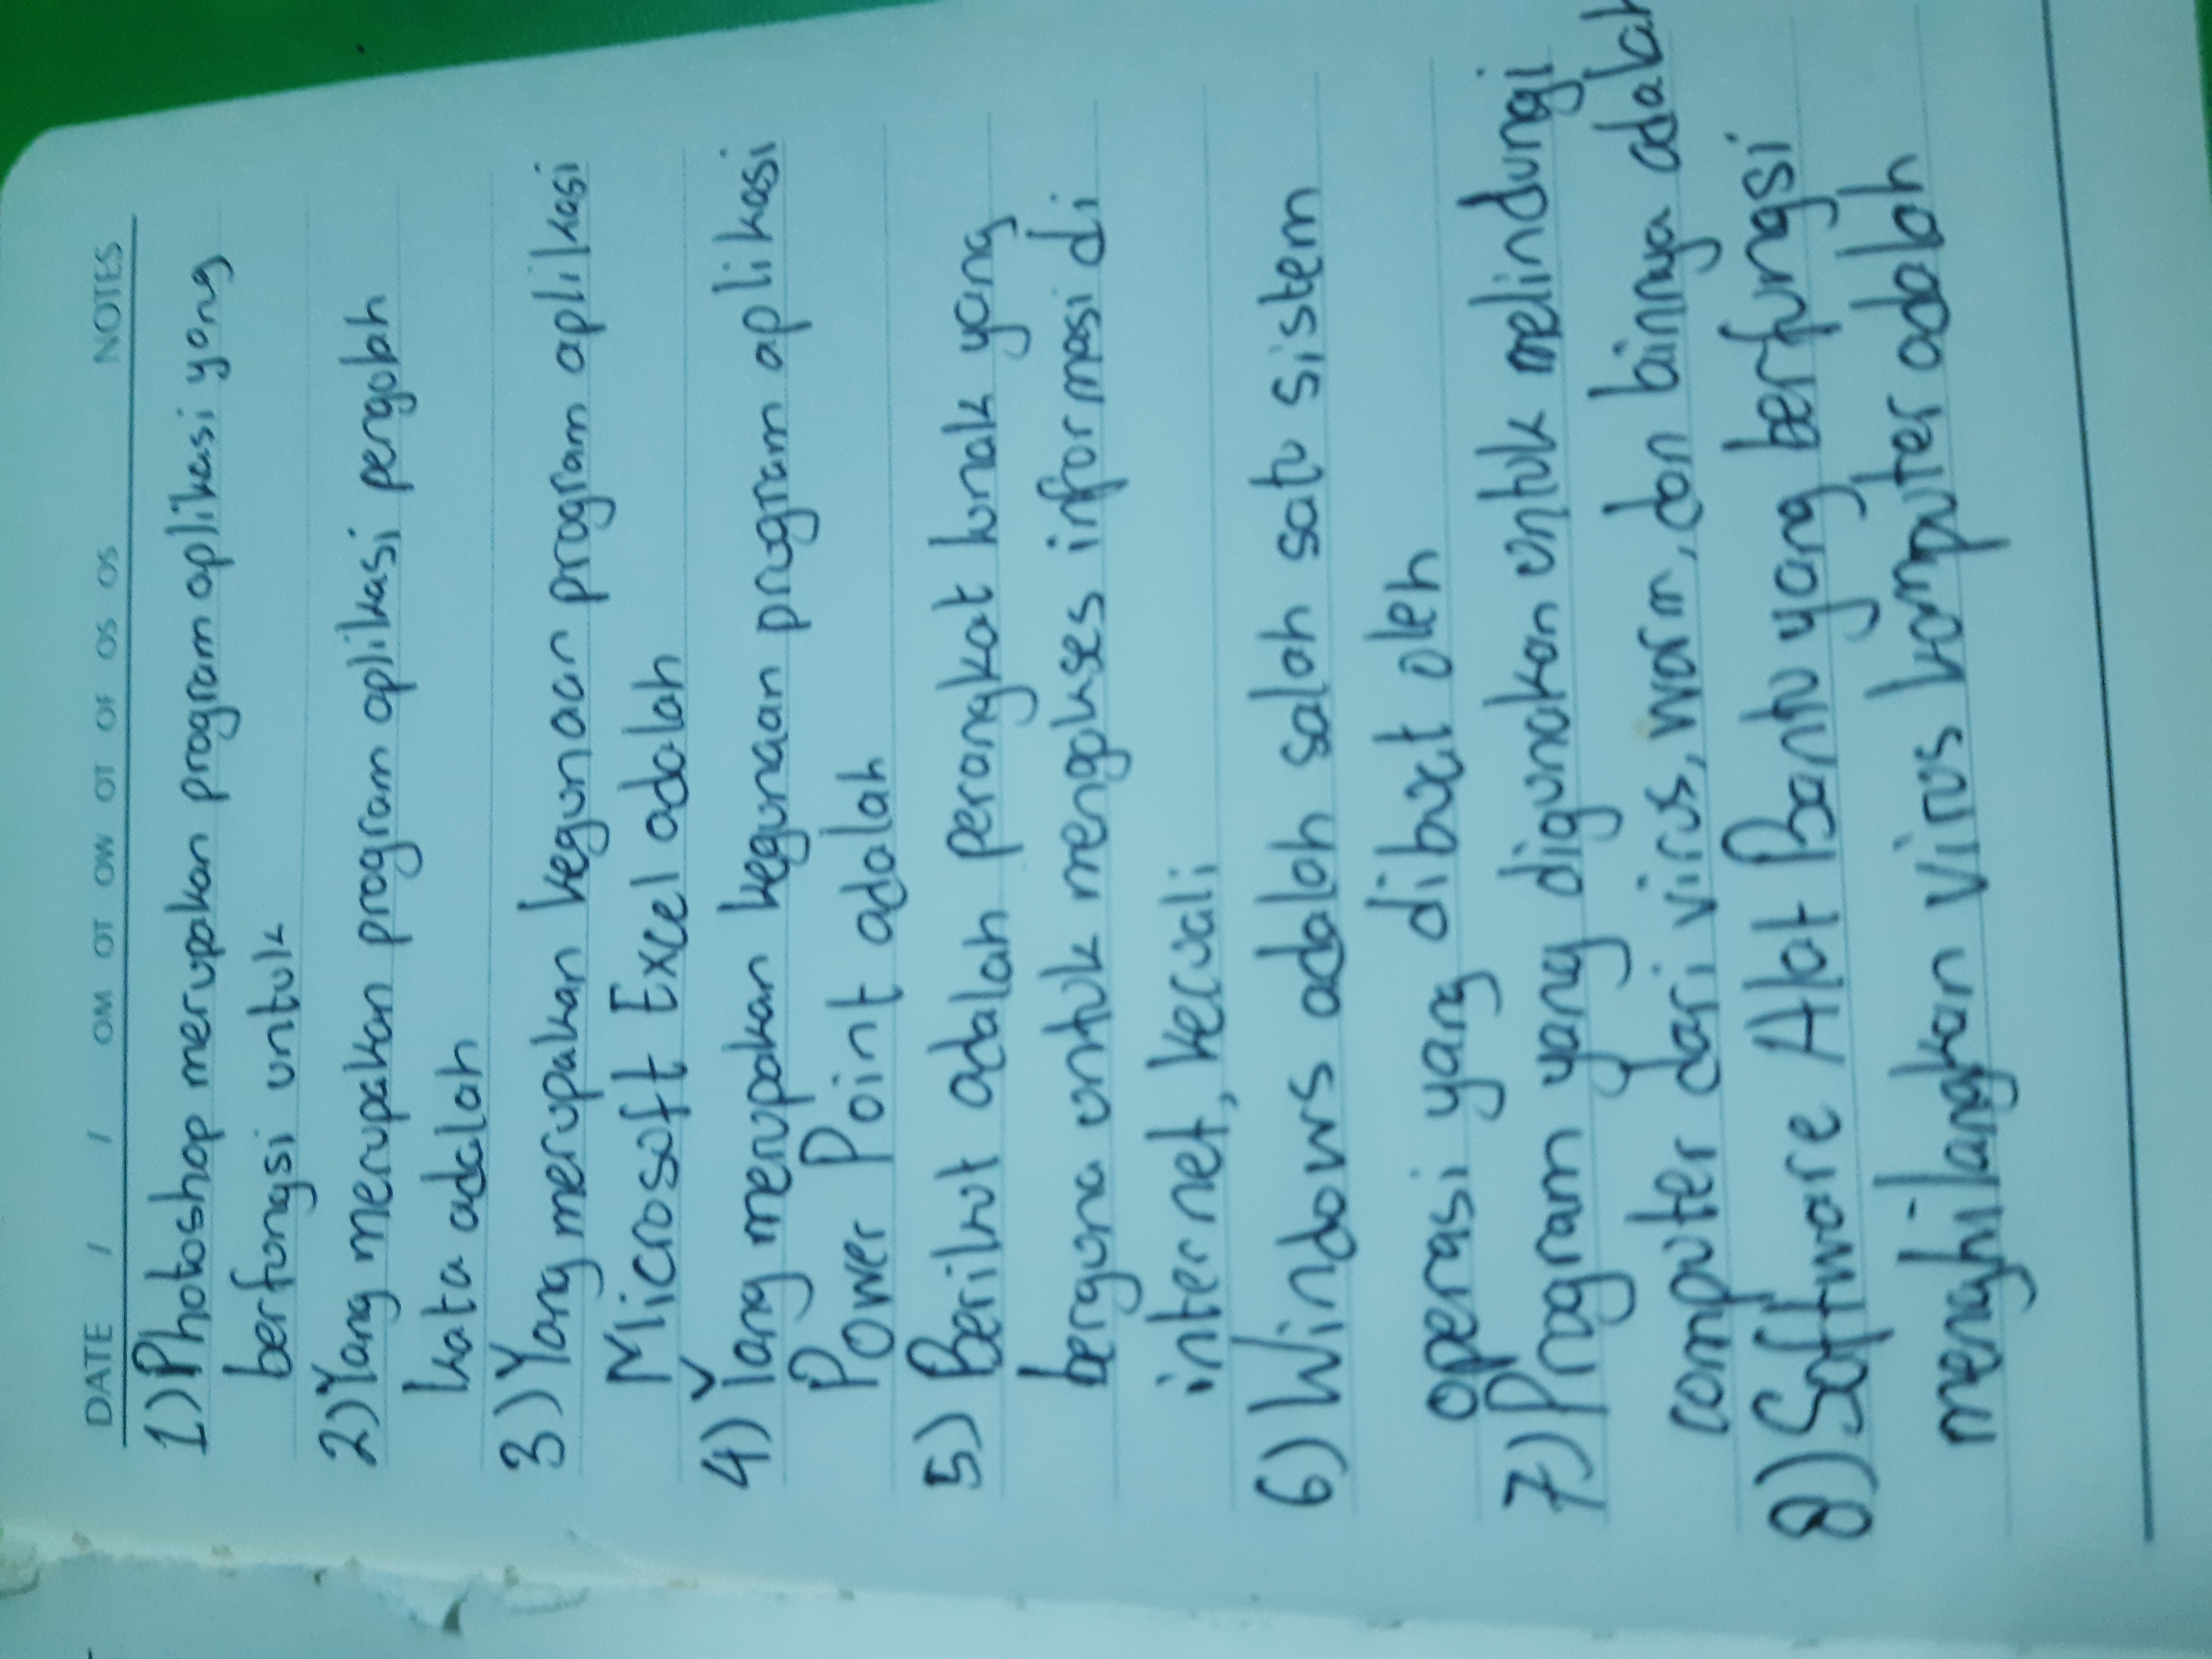 DATE / / OM OT OW OT OF OS OS NOTES
1) Photoshop merupakan program aplikasi yang
berfungsi untuk
2) Yang merupakan program aplikasi pengolah
kata adalah
3) Yang merupakan kegunaan program aplikasi
Microsoft Excel adalah
4) Yang merupakan kegunaan program aplikasi
Power Point adalah
5) Berikut adalah perangkat lunak yang
berguna untuk mengakses informasi di
internet, kecuali
6) Windows adalah salah satu sistem
operasi yang dibuat oleh
7) Program yang digunakan untuk melindungi
computer dari virus, worm, dan lainnya adalah
8) Software Alat Bantu yang berfungsi
menghilangkan virus komputer adalah